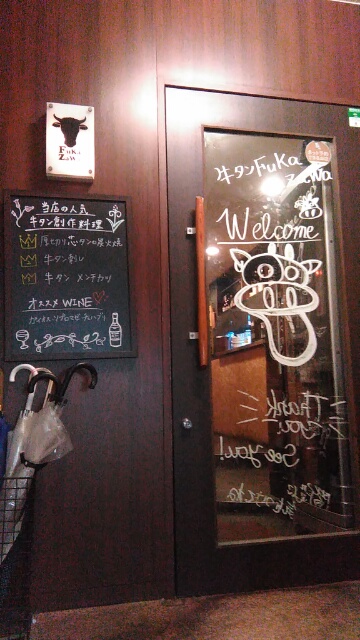 FuKa
ZaW
当店の人気
牛タン創作料理
厚切り芯タンの炭火焼
牛タン刺し
牛タン メンチカツ
オススメ WINE
牛タンFuKa
Zawa
Welcome
Thank
you!
See you!